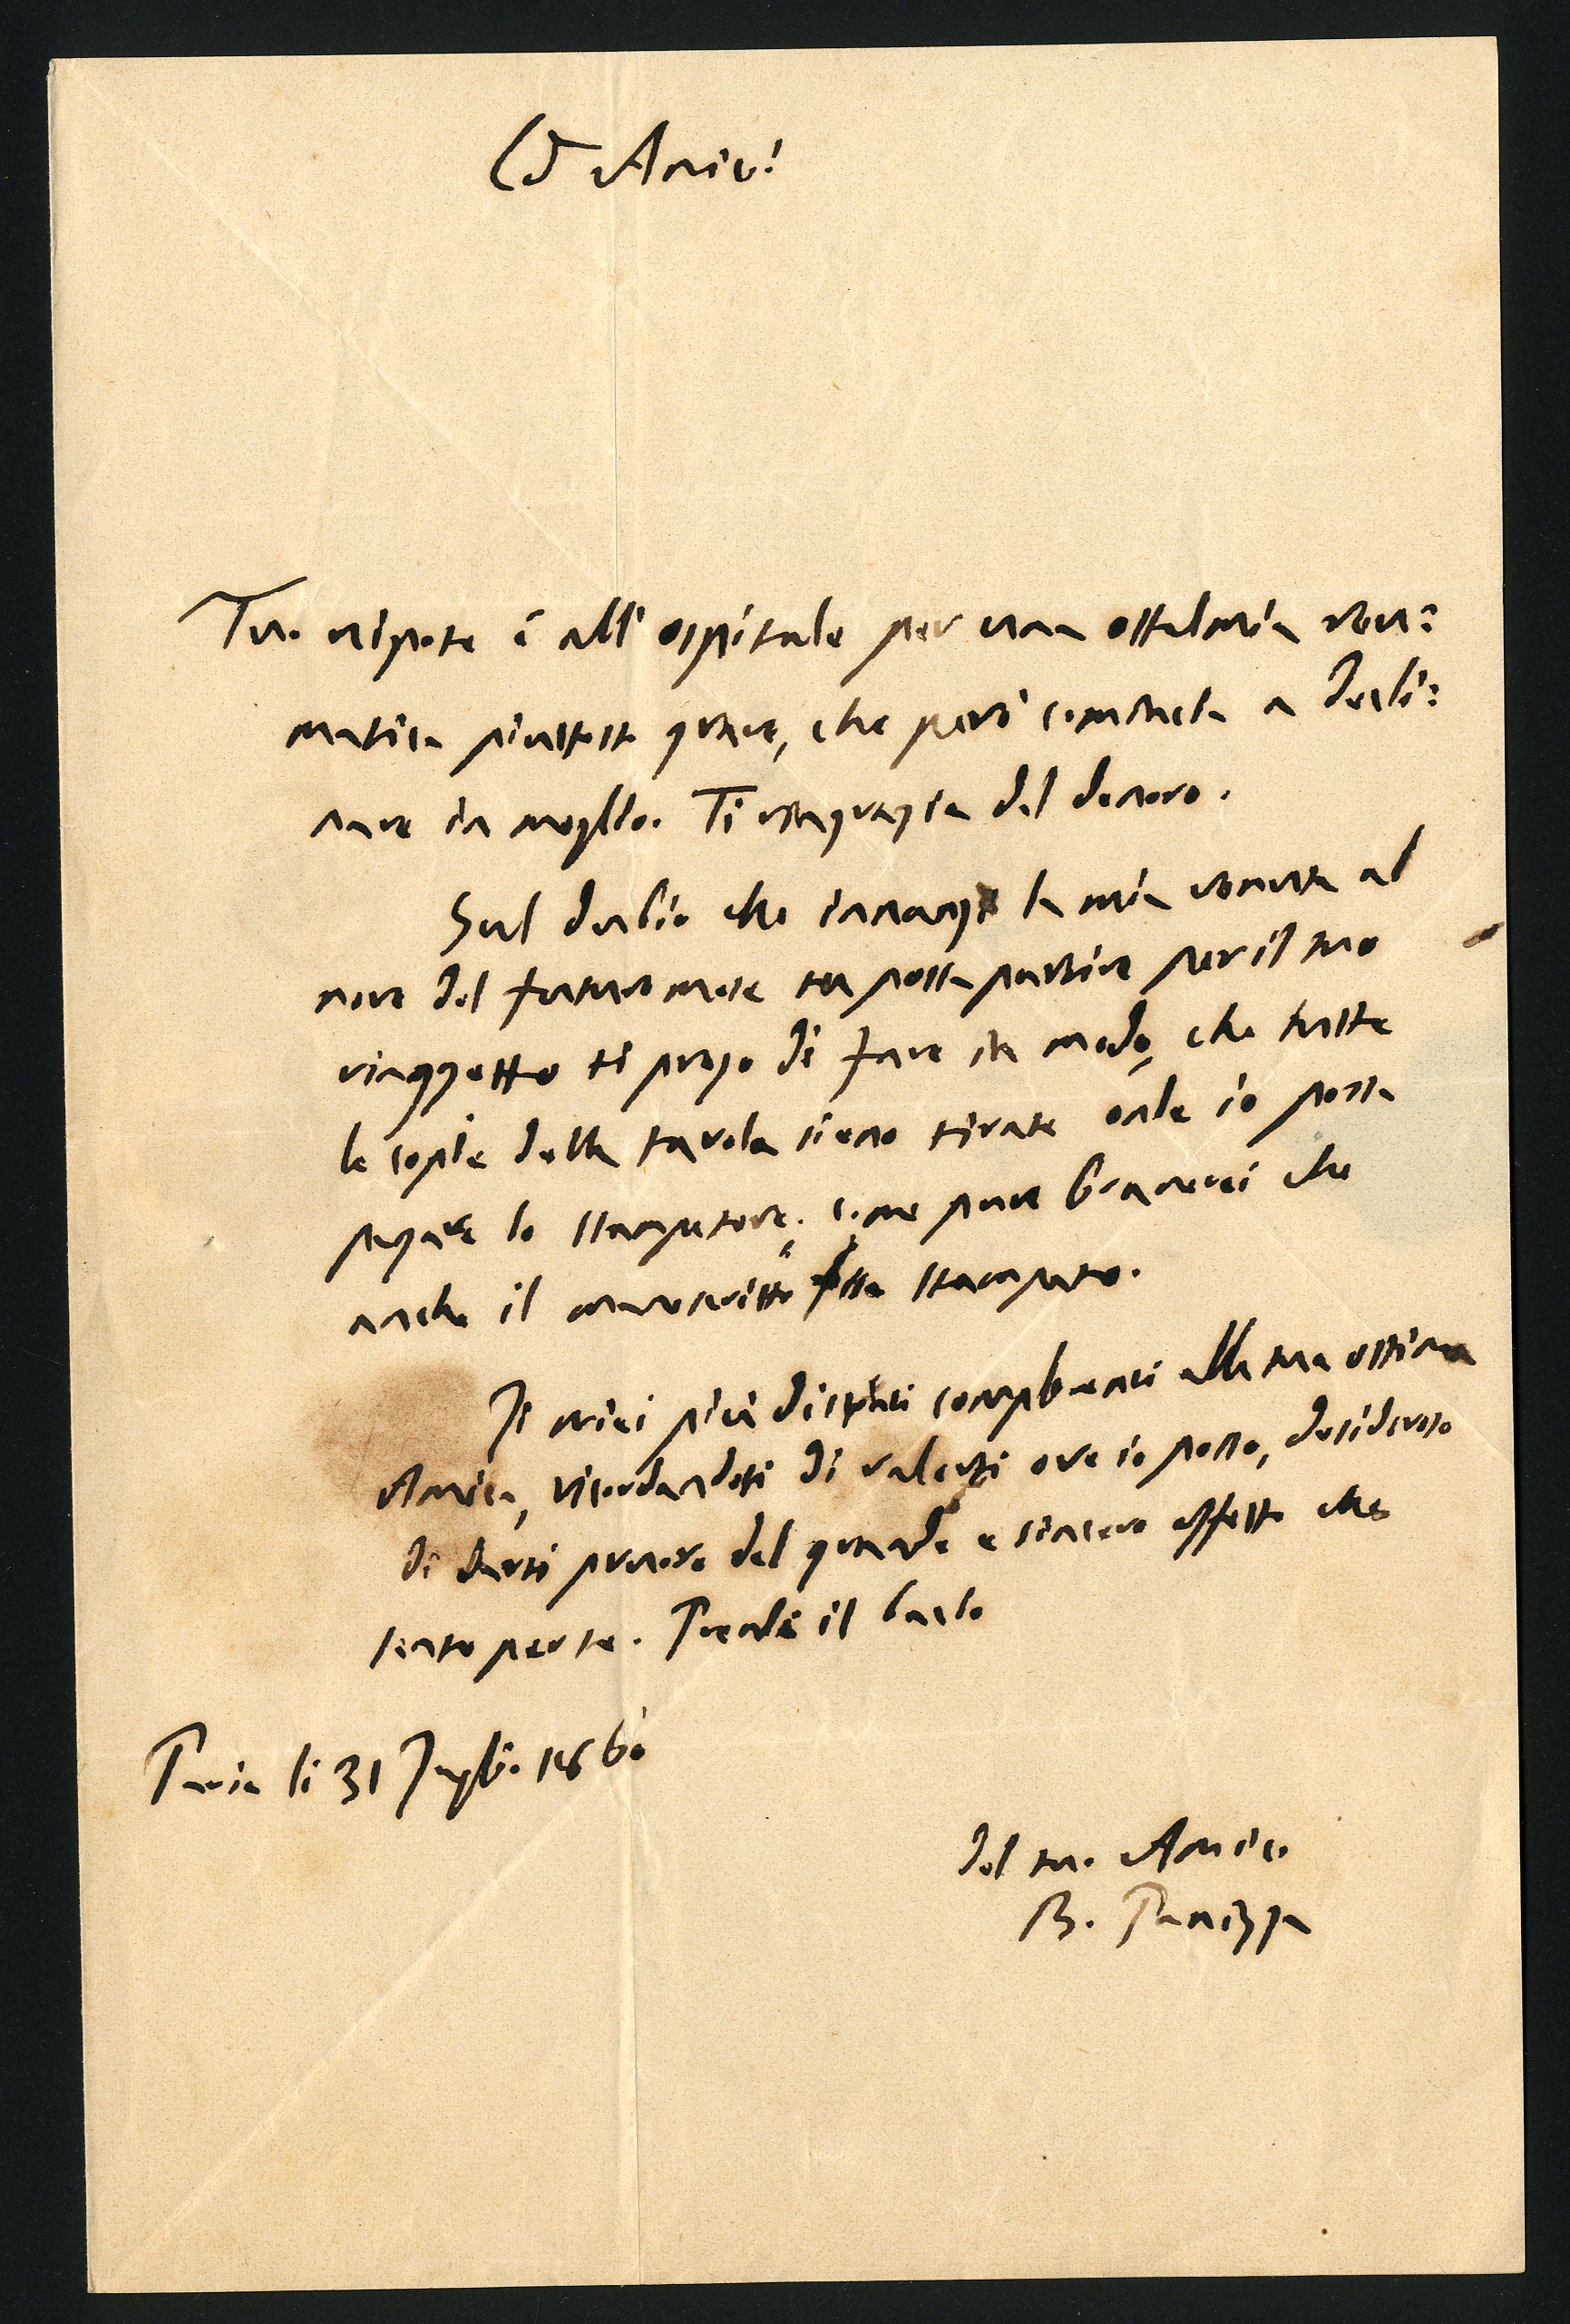 Cᵒ Amico!
Tuo nipote è all'ospitale per una ottalmia reu=
matica piuttosto grave, che però comincia a decli=
nare in meglio. Ti ringrazia del denaro.
Sul dubio che innanzi la mia venuta al
nove del futuro mese tu possa partire per il tuo
viaggetto ti prego di fare in modo, che tutte
le copie della tavola sieno tirate onde io possa
pagare lo stampatore; come pure bramerei che
anche il manoscritto fosse stampato.
I miei più distinti complimenti alla tua ottima
Amica, ricordandoti di valerti ove io posso, desideroso
di darti prove del grande e sincero affetto che
sento per te. Prendi il bacio
Pavia li 31 Luglio 1860
del tuo Amico
B. Panizza